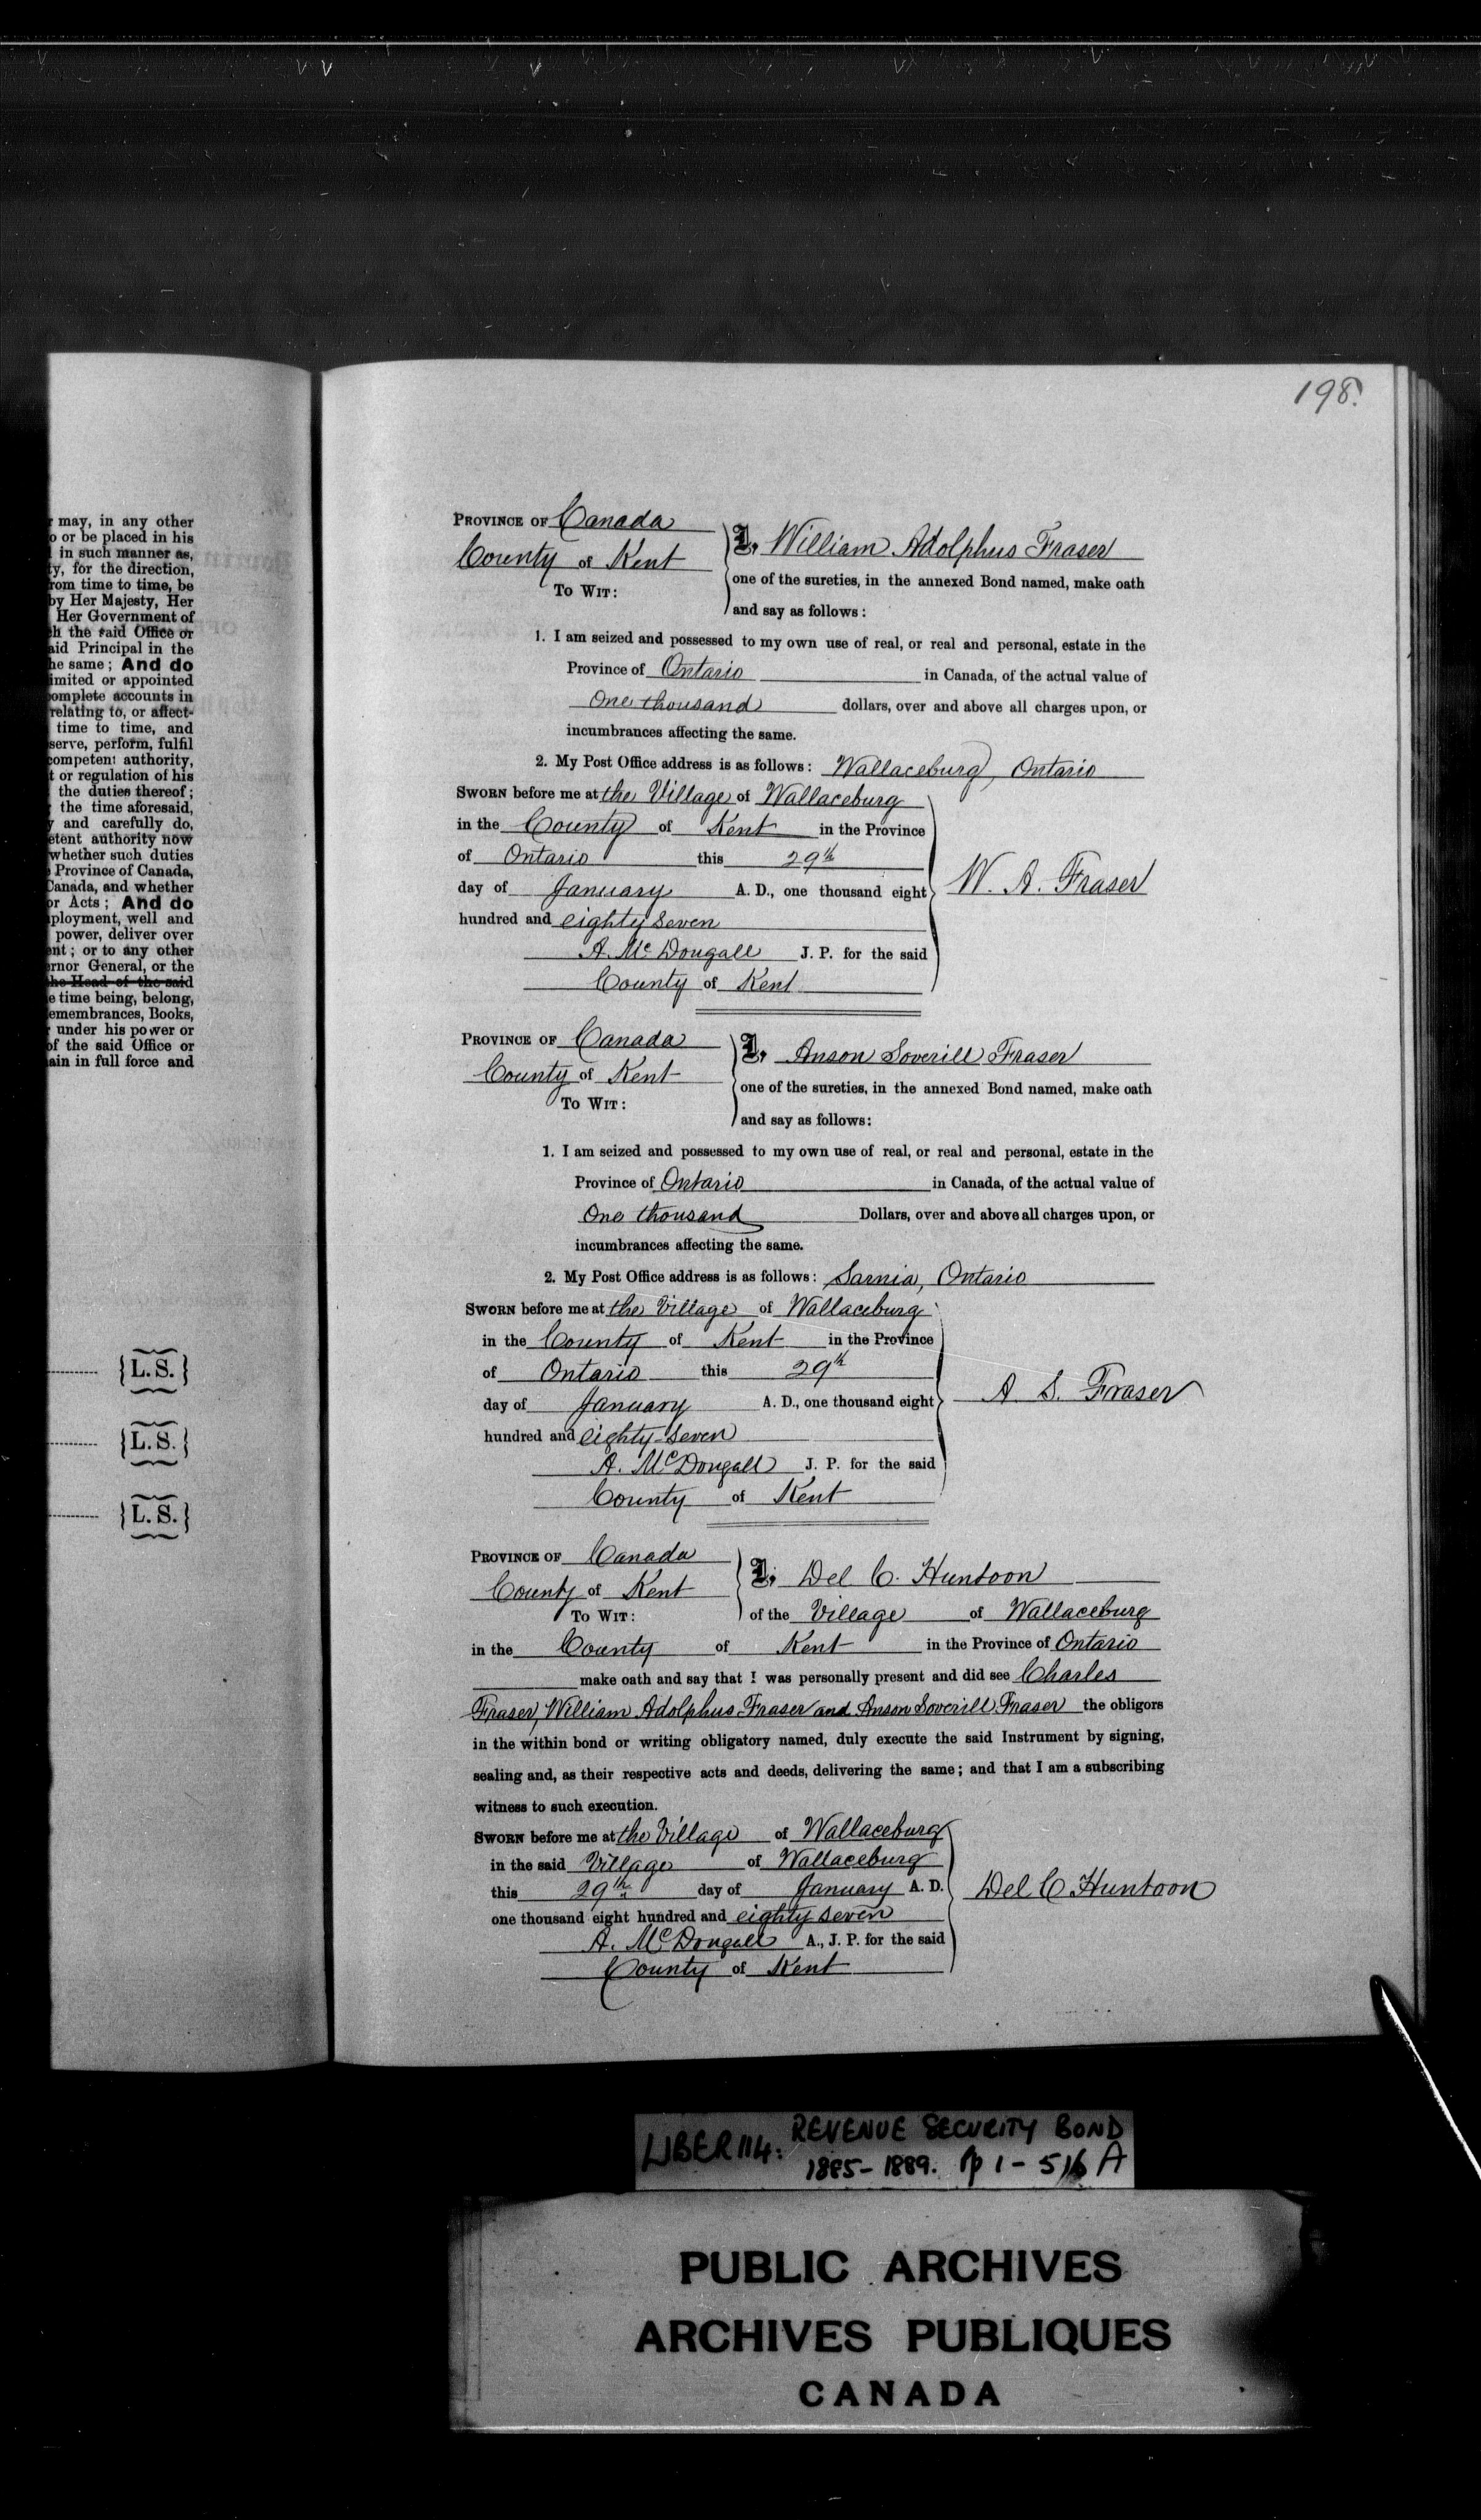 may, in any other
o or be placed in his
in such manner as,
ty, for the direction,
rom time to time, be
by Her Majesty, Her
Her Government of
h the said Office or
aid Principal in the
he same; And do
imited or appointed
omplete accounts in
relating to, or affect-
time to time, and
serve, perform, fulfil
competent authority,
t or regulation of his
the duties thereof;
the time aforesaid,
y and carefully do,
etent authority now
whether such duties
Province of Canada,
Canada, and whether
or Acts; And do
ployment, well and
power, deliver over
ent; or to any other
ernor General, or the
he Head of the said
e time being, belong,
emembrances, Books,
under his power or
of the said Office or
ain in full force and
{L.S.}
{L.S.}
{L.S.}
198.
PROVINCE OF Canada
County of Kent
TO WIT:
I, William Adolphus Fraser
one of the sureties, in the annexed Bond named, make oath
and say as follows:
1. I am seized and possessed to my own use of real, or real and personal, estate in the
Province of Ontario in Canada, of the actual value of
One thousand dollars, over and above all charges upon, or
incumbrances affecting the same.
2. My Post Office address is as follows: Wallaceburg, Ontario
SWORN before me at the Village of Wallaceburg
in the County of Kent in the Province
of Ontario this 29th
day of January A. D., one thousand eight
hundred and eighty seven
A. McDougall J. P. for the said
County of Kent
W. A. Fraser
PROVINCE OF Canada
County of Kent
TO WIT:
I, Anson Soverill Fraser
one of the sureties, in the annexed Bond named, make oath
and say as follows:
1. I am seized and possessed to my own use of real, or real and personal, estate in the
Province of Ontario in Canada, of the actual value of
One thousand Dollars, over and above all charges upon, or
incumbrances affecting the same.
2. My Post Office address is as follows: Sarnia, Ontario
SWORN before me at the Village of Wallaceburg
in the County of Kent in the Province
of Ontario this 29th
day of January A. D., one thousand eight
hundred and eighty-seven
A. McDougall J. P. for the said
County of Kent
A. S. Fraser
PROVINCE OF Canada
County of Kent
TO WIT:
I, Del C. Huntoon
of the Village of Wallaceburg
in the County of Kent in the Province of Ontario
make oath and say that I was personally present and did see Charles
Fraser, William Adolphus Fraser and Anson Soverill Fraser the obligors
in the within bond or writing obligatory named, duly execute the said Instrument by signing,
sealing and, as their respective acts and deeds, delivering the same; and that I am a subscribing
witness to such execution.
SWORN before me at the Village of Wallaceburg
in the said Village of Wallaceburg
this 29th day of January A. D.
one thousand eight hundred and eighty seven
A. McDougall A., J. P. for the said
County of Kent
Del C Huntoon
LIBER 114: REVENUE SECURITY BOND
1885-1889. pp 1-516 A
PUBLIC ARCHIVES
ARCHIVES PUBLIQUES
CANADA